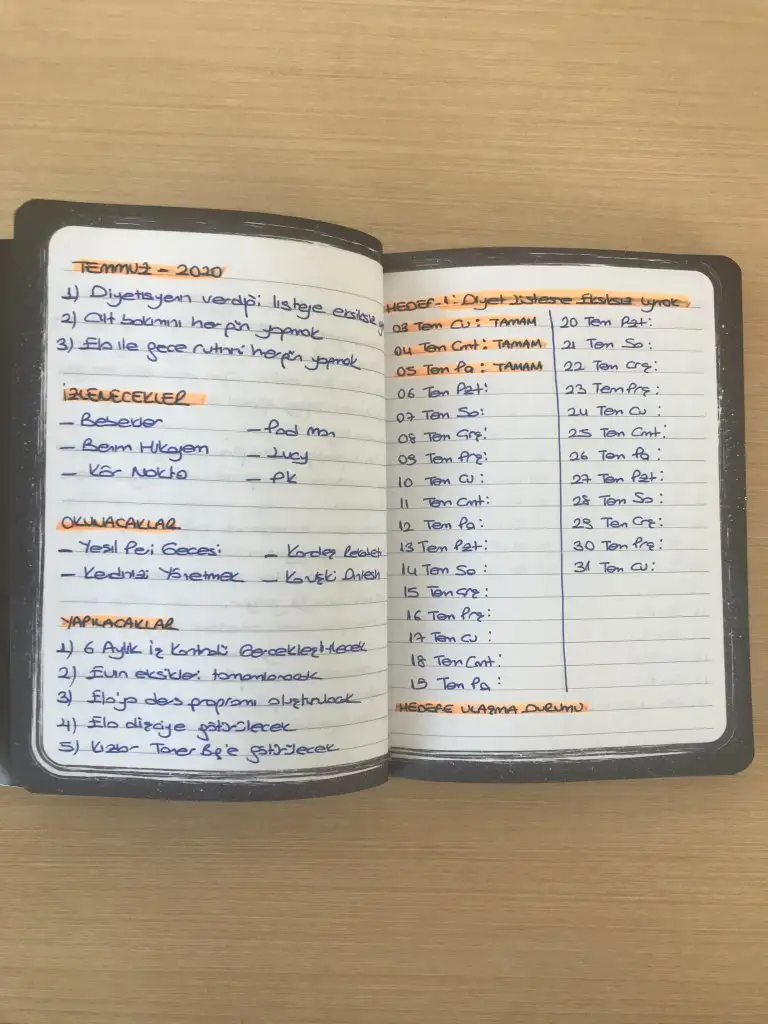 TEMMUZ - 2020
1) Diyetisyenin verdiği listeye eksiksiz
2) Cilt bakımını hergün yapmak
3) Ela ile gece rutinini hergün yapmak
İZLENECEKLER
- Bebekler - Pad man
- Benim Hikayem - Lucy
- Kör Nokta - PK
OKUNACAKLAR
- Yeşil Peri Gecesi - Kardeş Rekabeti
- Kendinizi Yönetmek
YAPILACAKLAR
1) 6 Aylık İş Kontrolü Gerçekleştirilecek
2) Evin eksikleri tamamlanacak
3) Ela'ya ders programı oluşturulacak
4) Ela dişçiye götürülecek
5) Kızlar Taner Bey'e götürülecek
HEDEF-1: Diyet Listesine Eksiksiz Uymak
03 Tem Cu: TAMAM
04 Tem Cmt: TAMAM
05 Tem Pa: TAMAM
06 Tem Pzt:
07 Tem Sa:
08 Tem Çrş:
09 Tem Prş:
10 Tem Cu:
11 Tem Cmt:
12 Tem Pa:
13 Tem Pzt:
14 Tem Sa:
15 Tem Çrş:
16 Tem Prş:
17 Tem Cu:
18 Tem Cmt:
19 Tem Pa:
20 Tem Pzt:
21 Tem Sa:
22 Tem Çrş:
23 Tem Prş:
24 Tem Cu:
25 Tem Cmt:
26 Tem Pa:
27 Tem Pzt:
28 Tem Sa:
29 Tem Çrş:
30 Tem Prş:
31 Tem Cu:
HEDEFE ULAŞMA DURUMU